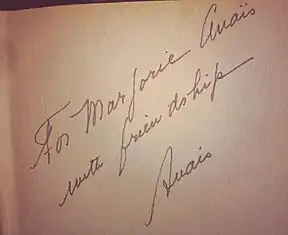 For Marjorie Anaïs
with friendship
Anais